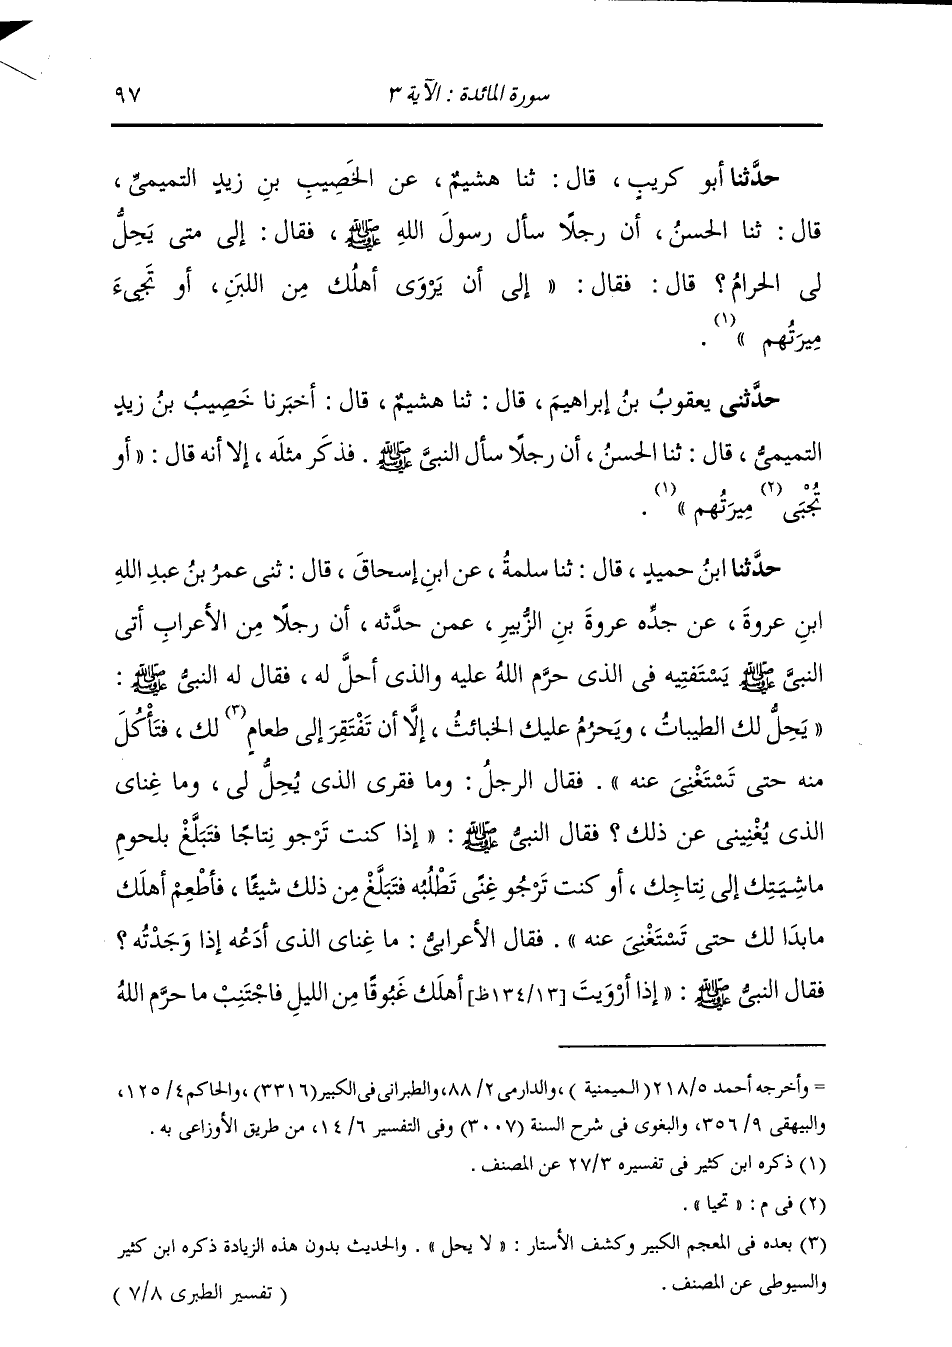 سورة المائدة : الآية ٣ ٩٧
حدَّثنا أبو كريبٍ ، قال : ثنا هشيمٌ ، عن الخَصِيبِ بنِ زيدٍ التميميِّ ،
قال : ثنا الحسنُ ، أن رجلًا سأل رسولَ اللهِ ﷺ ، فقال : إلى متى يَحِلُّ
لى الحرامُ ؟ قال : فقال : « إلى أن يَرْوَى أهلُك مِن اللبَنِ ، أو تَجِىءَ
مِيرَتُهم » (١) .
حدَّثنى يعقوبُ بنُ إبراهيمَ ، قال : ثنا هشيمٌ ، قال : أخبَرنا خَصِيبُ بنُ زيدٍ
التميمىُّ ، قال : ثنا الحسنُ ، أن رجلًا سأل النبىَّ ﷺ . فذكَر مثلَه ، إلا أنه قال : « أو
تُجْبَى (٢) مِيرَتُهم » (١) .
حدَّثنا ابنُ حميدٍ ، قال : ثنا سلمةُ ، عن ابنِ إسحاقَ ، قال : ثنى عمرُ بنُ عبدِ اللهِ
ابنِ عروةَ ، عن جدِّه عروةَ بنِ الزُّبيرِ ، عمن حدَّثه ، أن رجلًا مِن الأعرابِ أتى
النبىَّ ﷺ يَسْتَفتِيه فى الذى حرَّم اللهُ عليه والذى أحلَّ له ، فقال له النبىُّ ﷺ :
« يَحِلُّ لك الطيباتُ ، ويَحرُمُ عليك الخبائثُ ، إلَّا أن تَفْتَقِرَ إلى طعامٍ (٣) لك ، فتَأْكُلَ
منه حتى تَسْتَغْنِىَ عنه » . فقال الرجلُ : وما فقرى الذى يُحِلُّ لى ، وما غِناى
الذى يُغْنِينى عن ذلك ؟ فقال النبىُّ ﷺ : « إذا كنت تَرْجو نِتاجًا فتَبَلَّغْ بلحومِ
ماشِيَتِك إلى نِتاجِك ، أو كنت تَرْجُو غِنًى تَطْلُبُه فتَبَلَّغْ مِن ذلك شيئًا ، فأطْعِمْ أهلَك
مابدَا لك حتى تَسْتَغْنِىَ عنه » . فقال الأعرابىُّ : ما غِناى الذى أدَعُه إذا وَجَدْتُه ؟
فقال النبىُّ ﷺ : « إذا أرْوَيتَ [١٣٤/١٣ظ] أهلَك غَبُوقًا مِن الليلِ فاجْتَنِبْ ما حرَّم اللهُ
= وأخرجه أحمد ٢١٨/٥ (الميمنية ) ، والدارمى ٢/ ٨٨، والطبرانى فى الكبير (٣٣١٦) ، والحاكم ٤/ ١٢٥،
والبيهقى ٩/ ٣٥٦، والبغوى فى شرح السنة (٣٠٠٧) وفى التفسير ٦/ ١٤، من طريق الأوزاعى به .
(١) ذكره ابن كثير فى تفسيره ٢٧/٣ عن المصنف .
(٢) فى م : « تحيا » .
(٣) بعده فى المعجم الكبير وكشف الأستار : « لا يحل » . والحديث بدون هذه الزيادة ذكره ابن كثير
والسيوطى عن المصنف .
( تفسير الطبرى ٧/٨ )